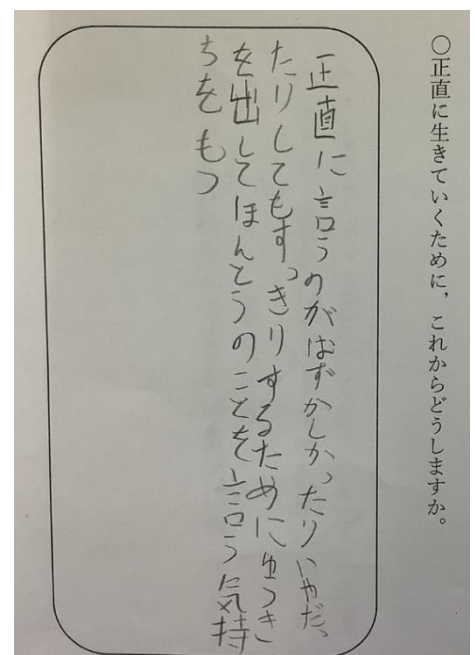 ○正直に生きていくために，これからどうしますか。
正直に言うのがはずかしかったりいやだっ
たりしてもすっきりするためにゆうき
を出してほんとうのことを言う気持
ちをもつ